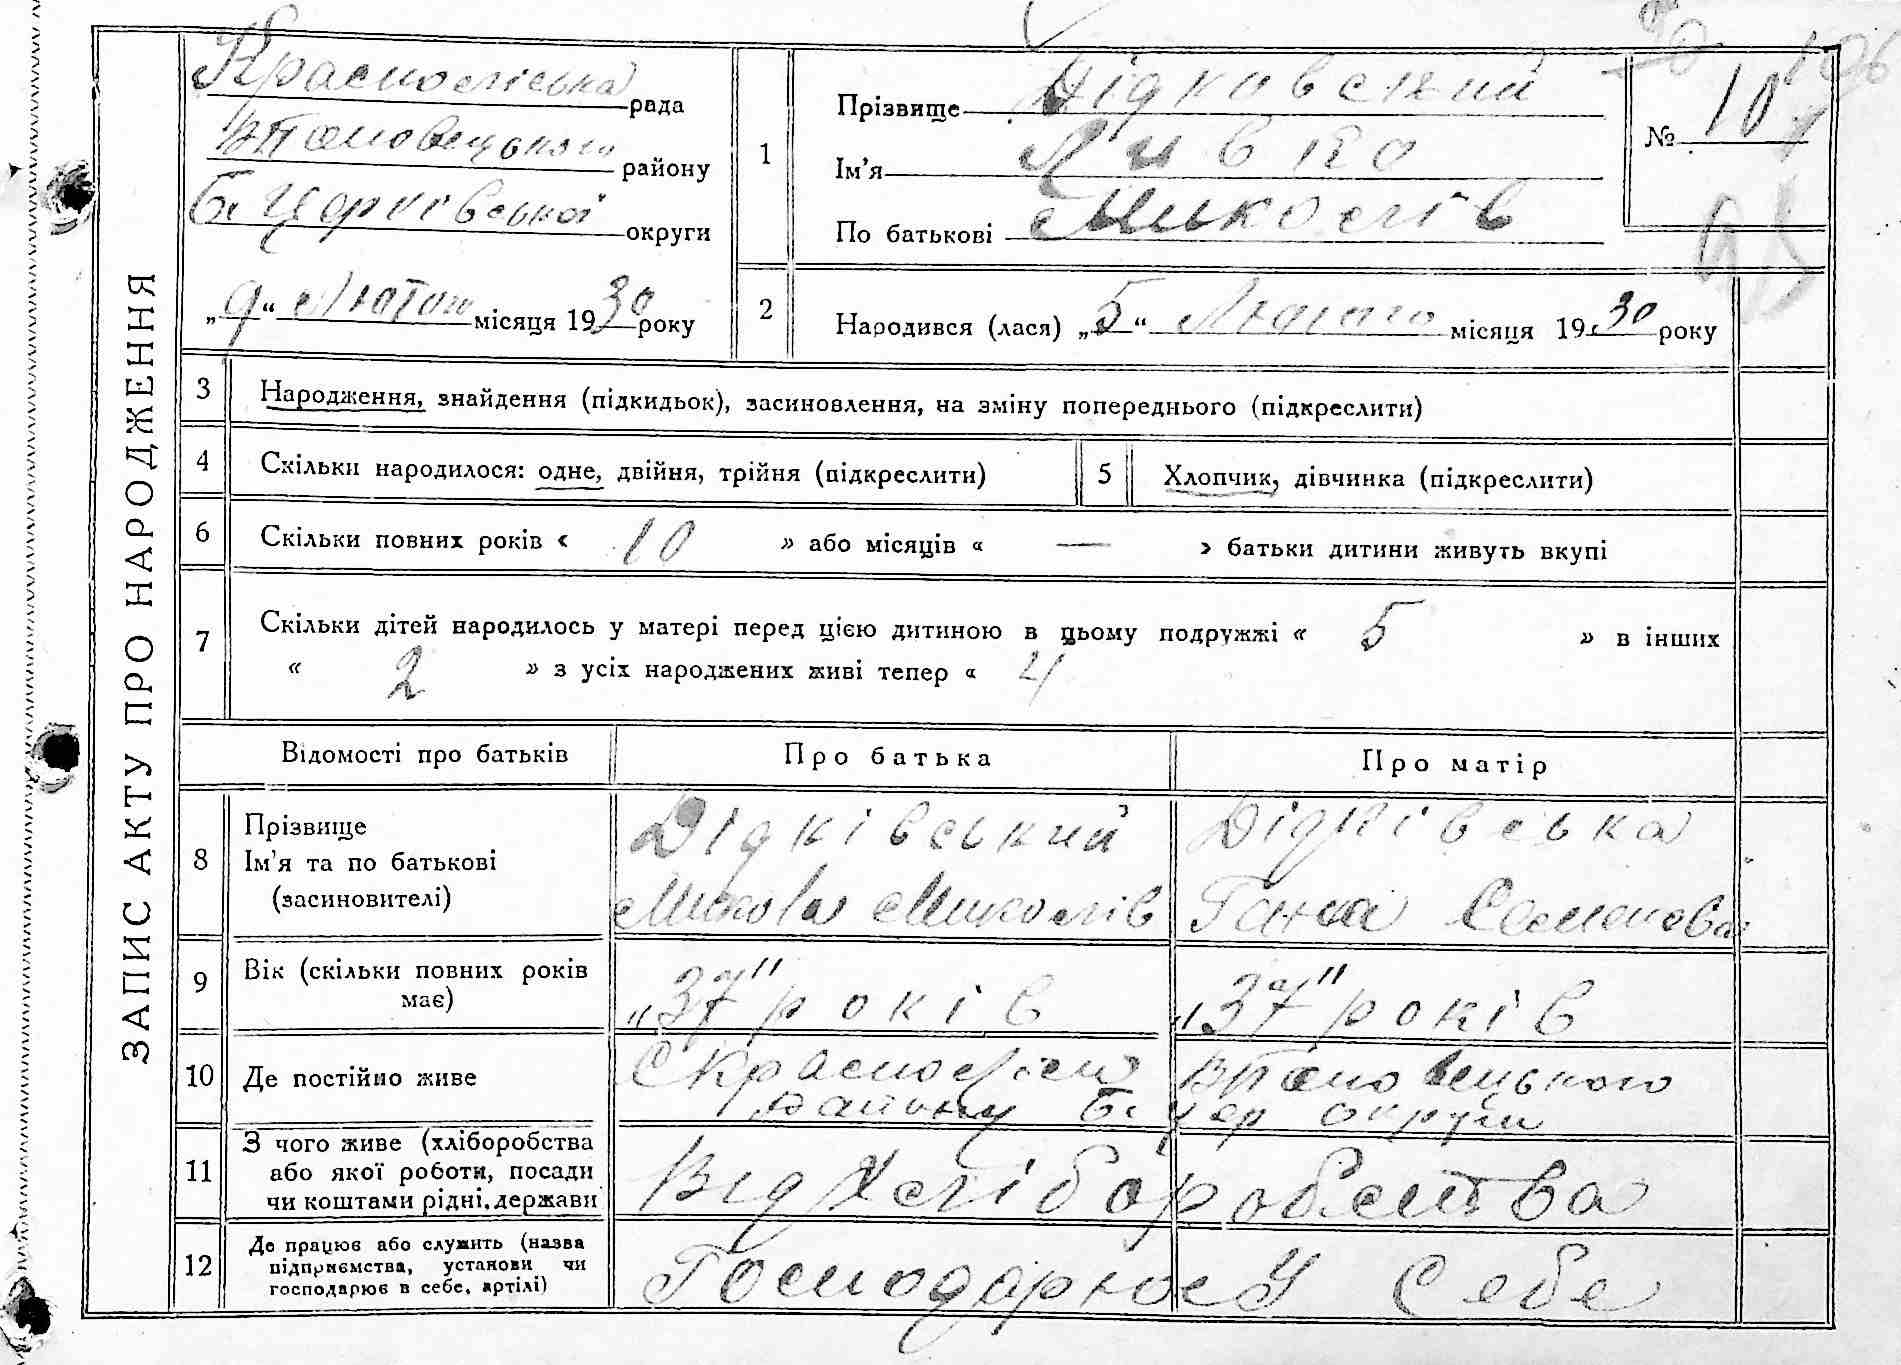 ЗАПИС АКТУ ПРО НАРОДЖЕННЯ
Красноліська рада
району
Б. Церківської округи
„9“ Лютого місяця 1930 року
1
Прізвище Дідковский
Ім'я Ливко
По батькові Миколів
№ 10
2
Народився (лася) „5“ Лютого місяця 1930 року
3
Народження, знайдення (підкидьок), засиновлення, на зміну попереднього (підкреслити)
4
Скільки народилося: одне, двійня, трійня (підкреслити)
5
Хлопчик, дівчинка (підкреслити)
6
Скільки повних років « 10 » або місяців « — » батьки дитини живуть вкупі
7
Скільки дітей народилось у матері перед цією дитиною в цьому подружжі « 5 » в інших
« 2 » з усіх народжених живі тепер « 4
Відомості про батьків
Про батька
Про матір
8
Прізвище
Ім'я та по батькові
(засиновителі)
Дідківський
Микола Миколів
Дідківська
Ганна Семенова
9
Вік (скільки повних років
має)
„37" років
„37" років
10
Де постійно живе
району Б. Цер округи
11
З чого живе (хліборобства
або якої роботи, посади
чи коштами рідні, держави
Від Хліборобства
12
Де працює або служить (назва
підприємства, установи чи
господарює в себе, артілі)
Господарює У Себе